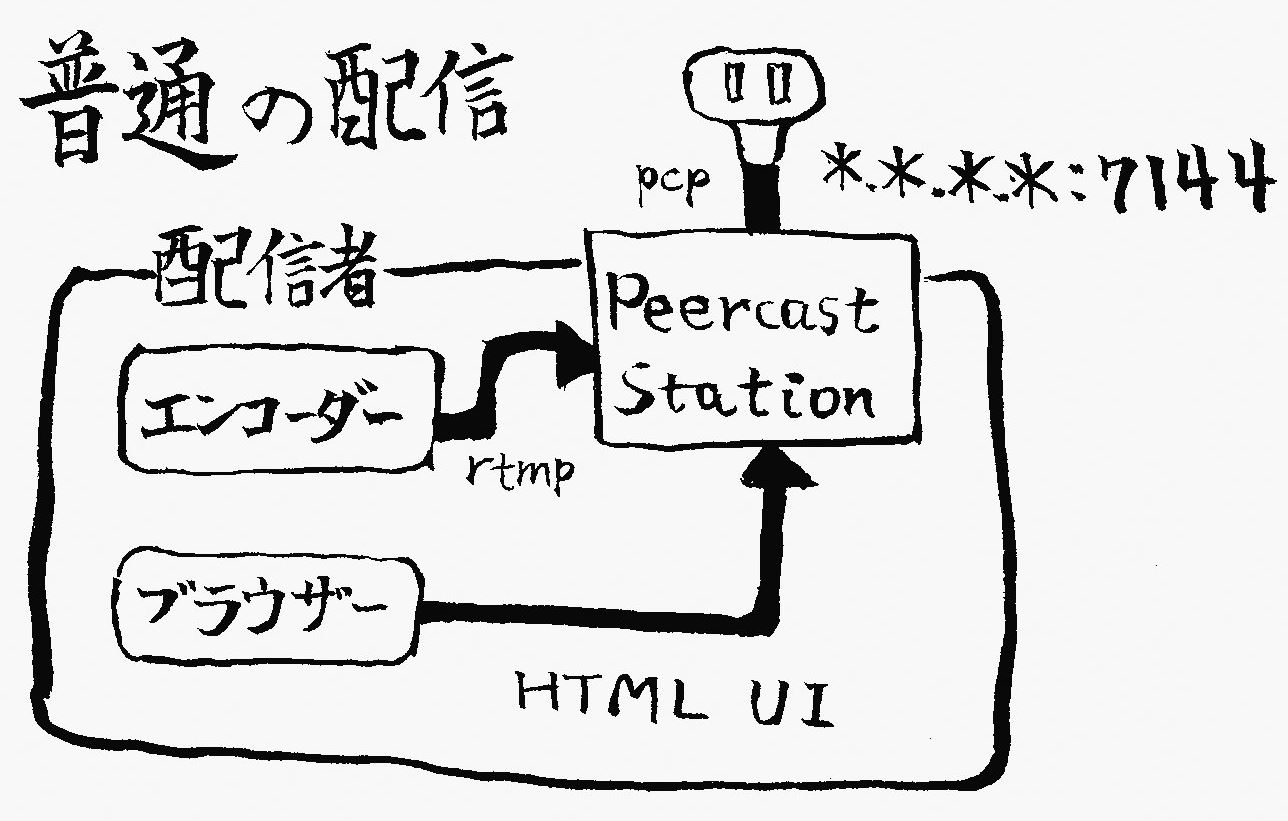 普通の配信
pcp
*.*.*.*:7144
配信者
Peercast
Station
エンコーダー
rtmp
ブラウザー
HTML UI